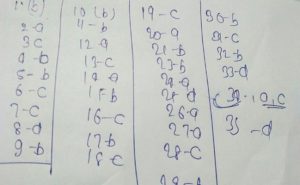 1. (b)
2-a
3 C
4-b
5-b
6-C
7-C
8-d
9-b
10 (b)
12-a
13-C
15-b
16-C
17-b
18-C
19-C
20-a
21-b
23-b
26-a
27-a
28-C
30-b
31-C
32-b
33-d
35 -d